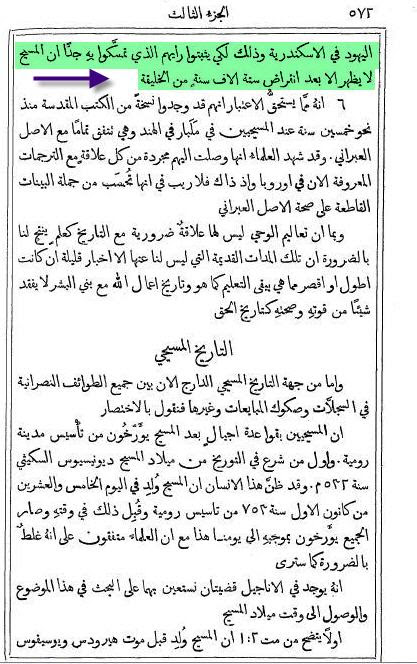 ٥٧٢ الجزء الثالث
اليهود في الاسكندرية وذلك لكي يثبتوا رايهم الذي تمسَّكوا بهِ جدًّا ان المسيح
لا يظهر الا بعد انقراض ستة الاف سنةٍ من الخليقة
٦ انهُ ممَّا يستحقُّ الاعتبار انهم قد وجدوا نسخةً من الكتب المقدسة منذ
نحو خمسين سنة عند المسيحيين في ملَبار في الهند وهي نتفق تمامًا مع الاصل
العبراني. وقد شهد العلماءُ انها وصلت اليهم مجردة من كل علاقةٍ مع الترجمات
المعروفة الان في اوروبا وإذ ذاك فلا ريب في انها تُحسَب من جملة البينات
القاطعة على صحة الاصل العبراني
وبما ان تعاليم الوحي ليس لها علاقةٌ ضرورية مع التاريخ كعلمٍ ينتج لنا
بالضرورة ان تلك المدات القديمة التي ليس لنا عنها الا اخبار قليلة ان كانت
اطول او اقصر مما هي يبقى التعليم كما هو وتاريخ اعمال الله مع بني البشر لا يفقد
شيئًا من قوتهِ وصحتهِ كتاريخ الحق
التاريخ المسيحي
واما من جهة التاريخ المسيحي الدارج الان بين جميع الطوائف النصرانية
في السجلَّات وصكوك المبايعات وغيرها فنقول بالاختصار
ان المسيحيين بقوا عدة اجيالٍ بعد المسيح يورّخون من تأسيس مدينة
رومية. واول من شرع في التوريخ من ميلاد المسيح ديونيسيوس السكيثي
سنة ٥٢٣ م. وقد ظنَّ هذا الانسان ان المسيح وُلِد في اليوم الخامس والعشرين
من كانون الاول سنة ٧٥٣ من تاسيس رومية وقُبِل ذلك في وقتهِ وصار
الجميع يورّخون بموجبهِ الى يومنا هذا مع ان العلماء متفقون على انهُ غلطٌ
بالضرورة كما سترى
انهُ يوجد في الاناجيل قضيتان نستعين بهما على البحث في هذا الموضوع
والوصول الى وقت ميلاد المسيح
اولاً يتضح من مت ٢:١ ان المسيح وُلِد قبل موت هيرودس ويوسيفوس